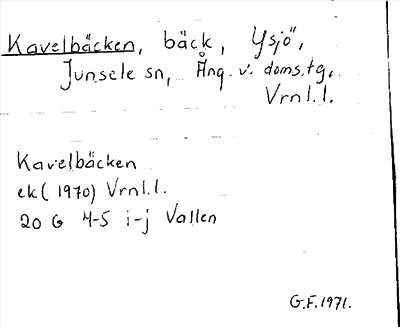 Kavelbäcken, bäck, Ysjö,
Junsele sn, Ång. v. doms.tg,
Vrnl.l.
Kavelbäcken
ek (1970) Vrnl.l.
20 G 4-5 i-j Vallen
G.F. 1971.